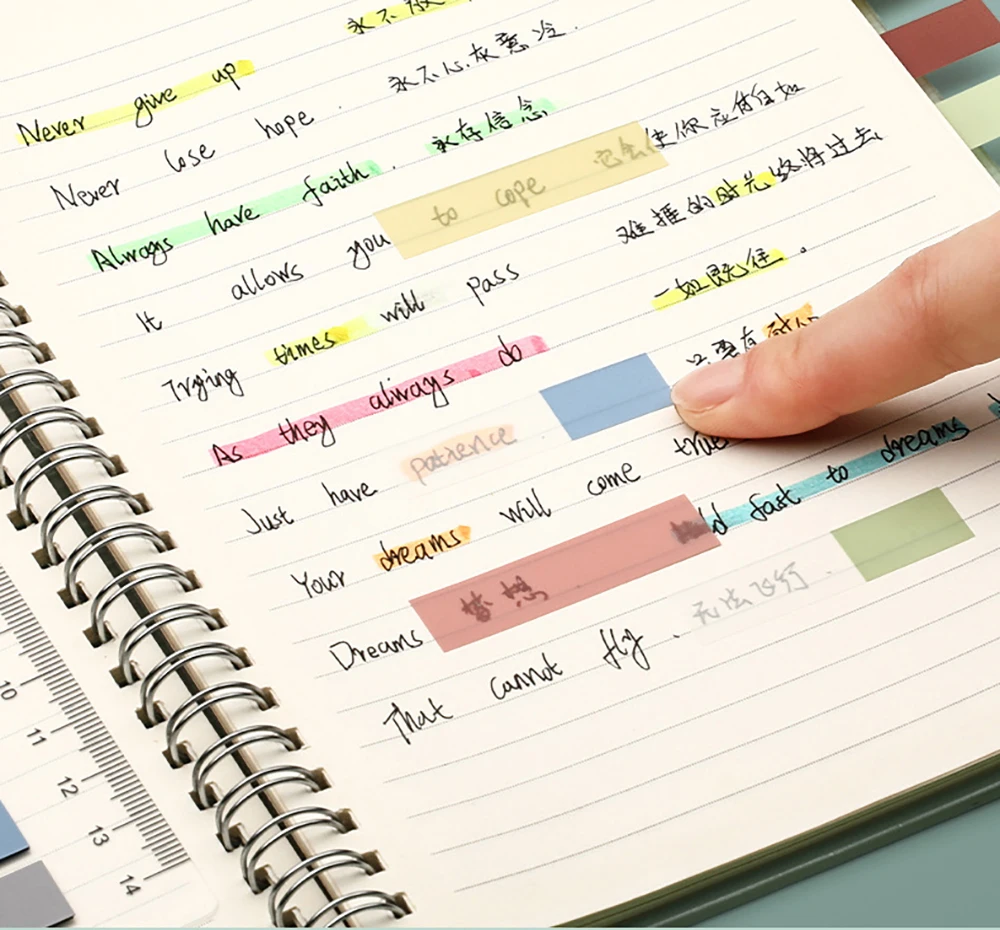 Never give up 永不
Never lose hope. 永不心灰意冷.
Always have faith. 永存信念
It allows you to cope 它会使你应付自如
Trying times will pass 难捱的时光终将过去
As they always do 一如既往.
Just have patience 只要有耐心
Your dreams will come true
Dreams 梦想 Hold fast to dreams
That cannot fly. 无法飞行.
10
11
12
13
14